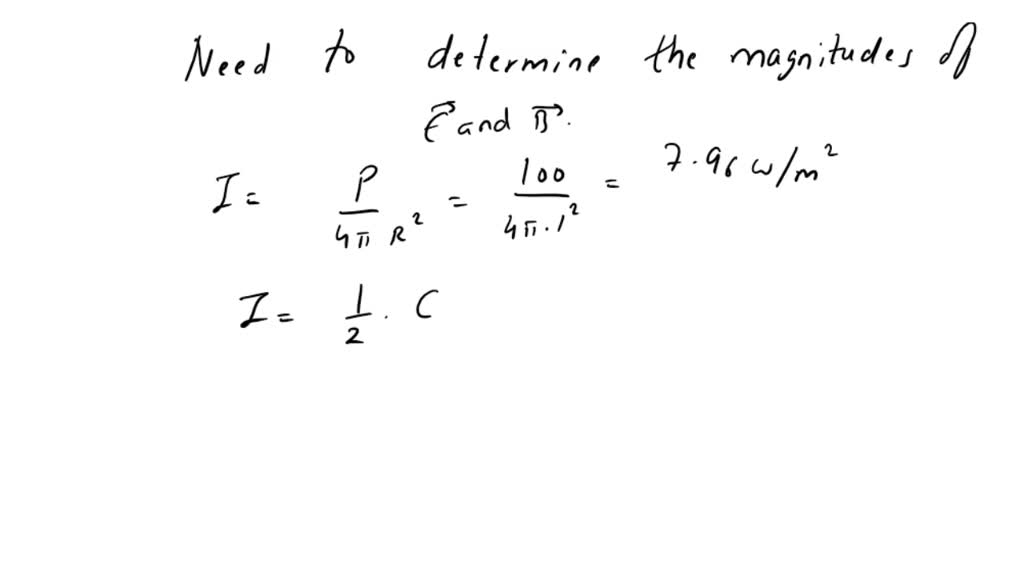 Need to determine the magnitudes of
E⃗ and B⃗.
I = P / 4π R² = 100 / 4π · 1² = 7.96 w/m²
I = 1/2 · C